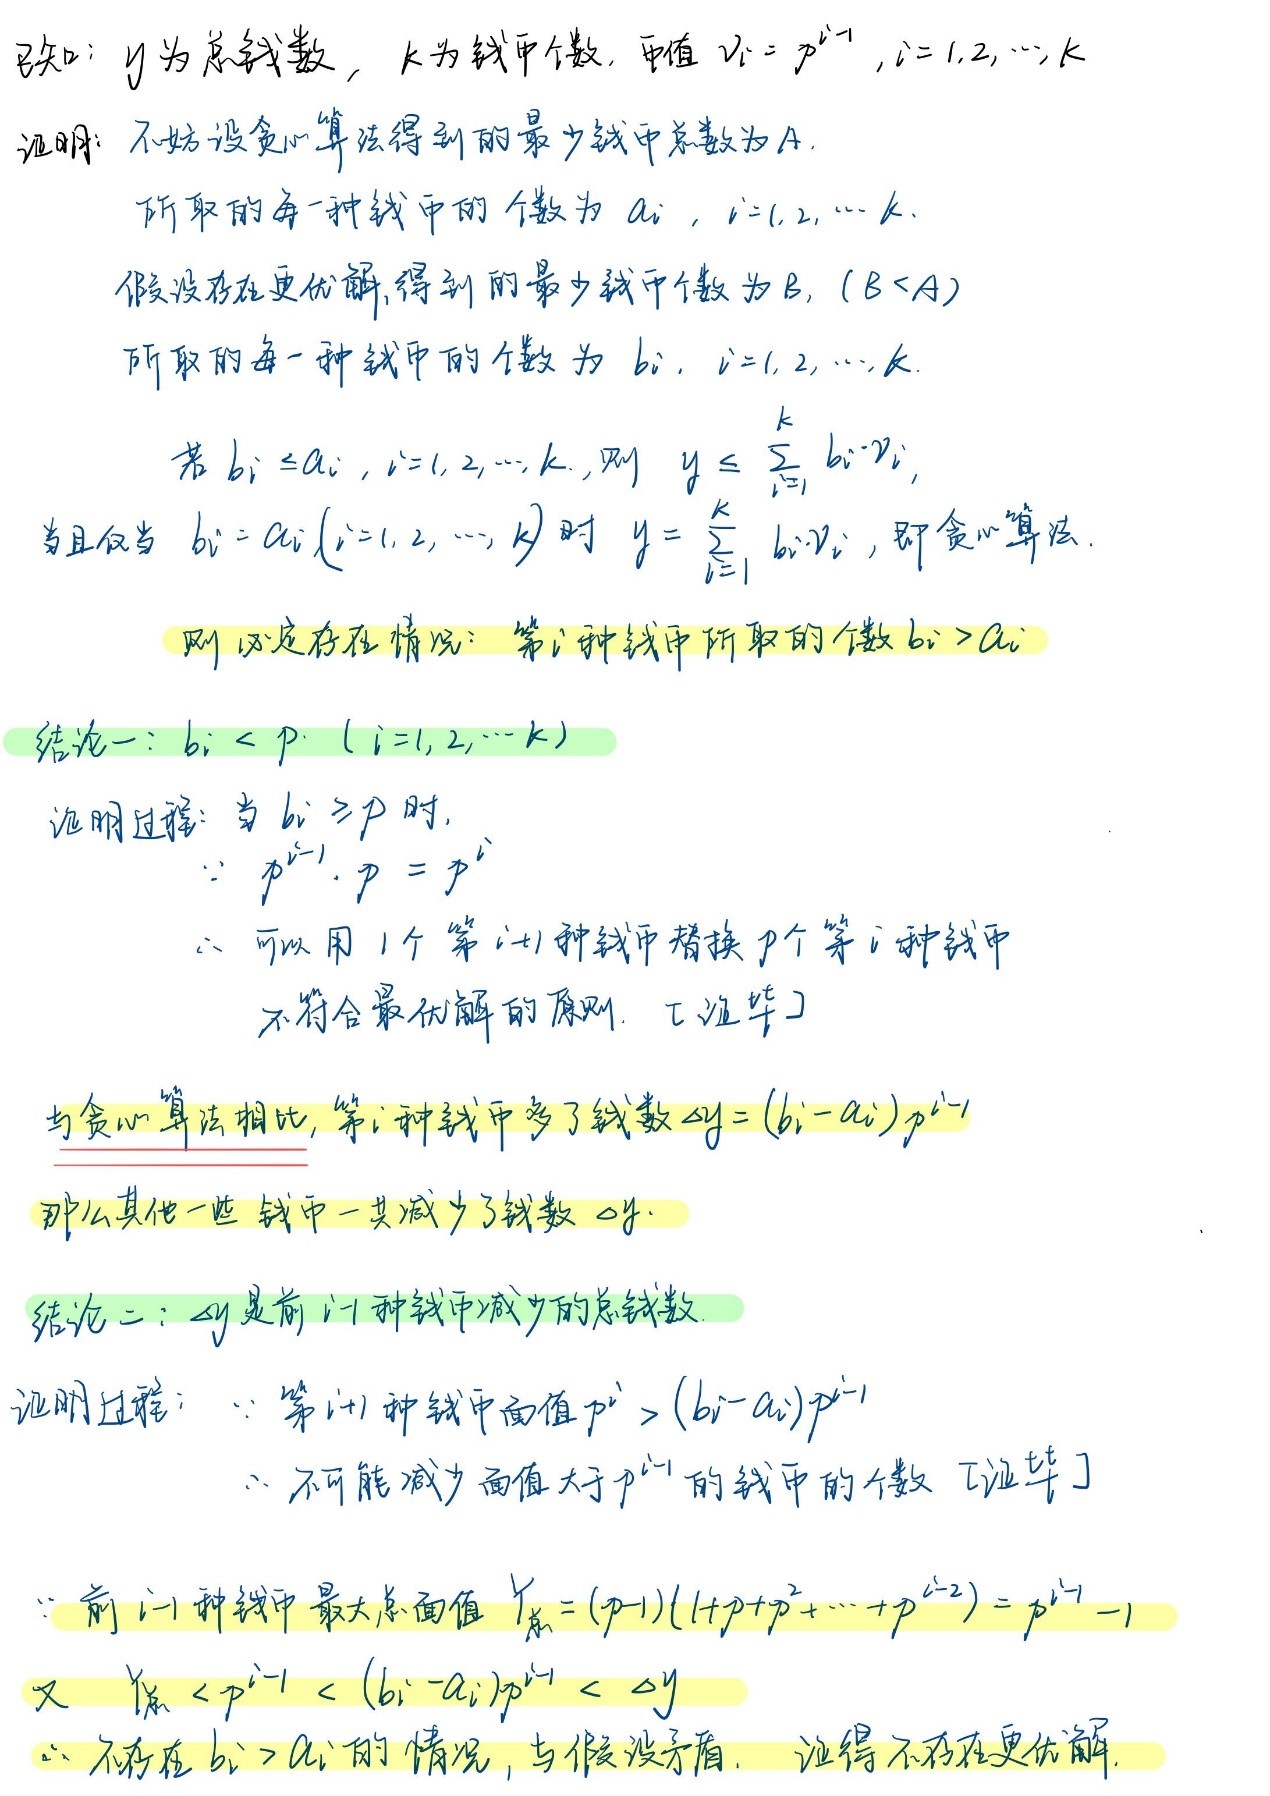 已知: y为总钱数, k为钱币个数. 币值 vᵢ = pⁱ⁻¹, i=1,2,…,k
证明: 不妨设贪心算法得到的最少钱币总数为A.
所取的每一种钱币的个数为 aᵢ, i=1,2,…k.
假设存在更优解,得到的最少钱币个数为B, (B<A)
所取的每一种钱币的个数为 bᵢ, i=1,2,…,k.
若 bᵢ ≤ aᵢ, i=1,2,…,k., 则 y ≤ ∑_{i=1}^{k} bᵢ·vᵢ,
当且仅当 bᵢ = aᵢ (i=1,2,…,k) 时 y = ∑_{i=1}^{k} bᵢ·vᵢ, 即贪心算法.
则必定存在情况: 第i种钱币所取的个数 bᵢ > aᵢ
结论一: bᵢ < p. (i=1,2,…k)
证明过程: 当 bᵢ ≥ p 时,
∵ pⁱ⁻¹·p = pⁱ
∴ 可以用1个第i+1种钱币替换p个第i种钱币
不符合最优解的原则. [证毕]
与贪心算法相比, 第i种钱币多了钱数 △y = (bᵢ-aᵢ)pⁱ⁻¹
那么其他一些钱币一共减少了钱数 △y.
结论二: △y是前i-1种钱币减少的总钱数.
证明过程: ∵ 第i+1种钱币面值 pⁱ > (bᵢ-aᵢ)pⁱ⁻¹
∴ 不可能减少面值大于pⁱ⁻¹的钱币的个数 [证毕]
∵ 前i-1种钱币最大总面值 Y总 = (p-1)(1+p+p²+…+pⁱ⁻²) = pⁱ⁻¹-1
又 Y总 < pⁱ⁻¹ < (bᵢ-aᵢ)pⁱ⁻¹ < △y
∴ 不存在 bᵢ > aᵢ 的情况, 与假设矛盾. 证得不存在更优解.